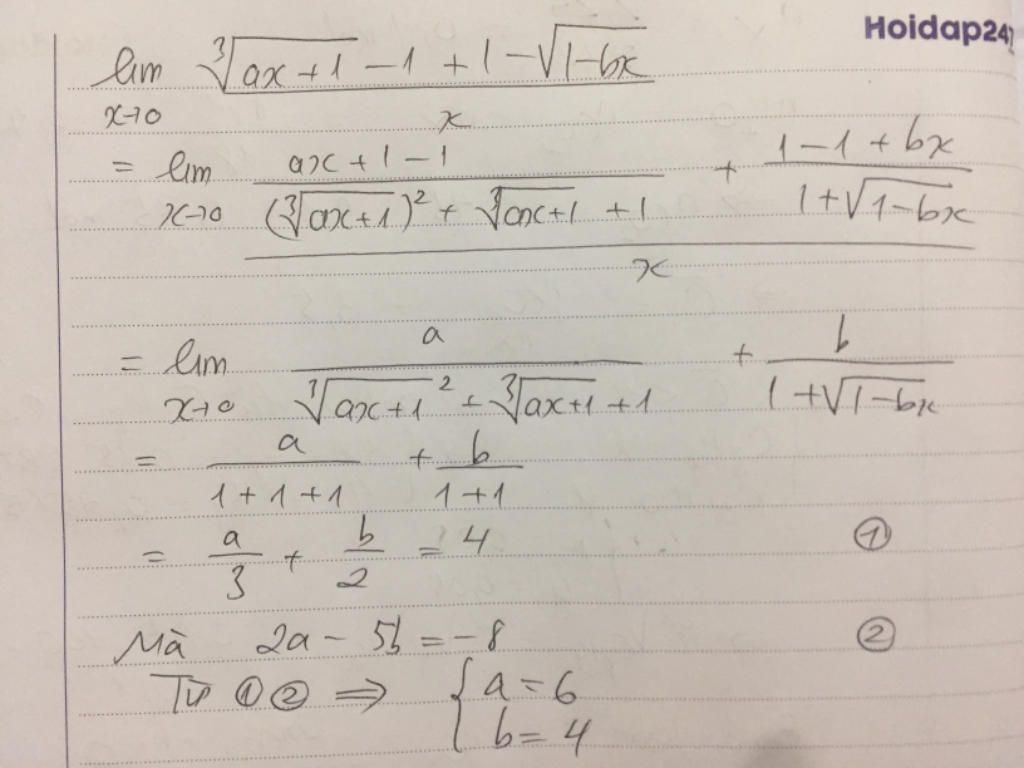 Hoidap247
lim x→0 (∛(ax+1) - 1 + 1 - √(1-bx)) / x
= lim x→0 ((ax + 1 - 1) / ((∛(ax+1))² + ∛(ax+1) + 1) + (1 - 1 + bx) / (1 + √(1-bx))) / x
= lim x→0 a / (∛(ax+1)² + ∛(ax+1) + 1) + b / (1 + √(1-bx))
= a / (1+1+1) + b / (1+1)
= a/3 + b/2 = 4 ①
Mà 2a - 5b = -8 ②
Từ ① ② ⇒ { a = 6
b = 4